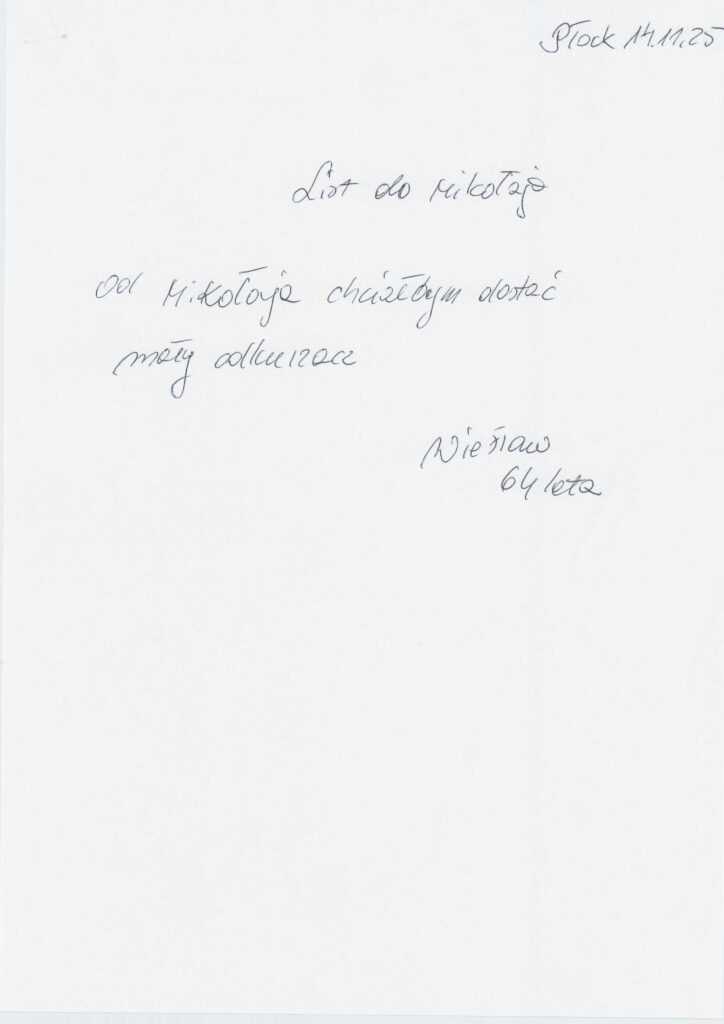 Płock 14.11.25
List do Mikołaja
Od Mikołaja chciałbym dostać
mały odkurzacz
Wiesław
64 lata